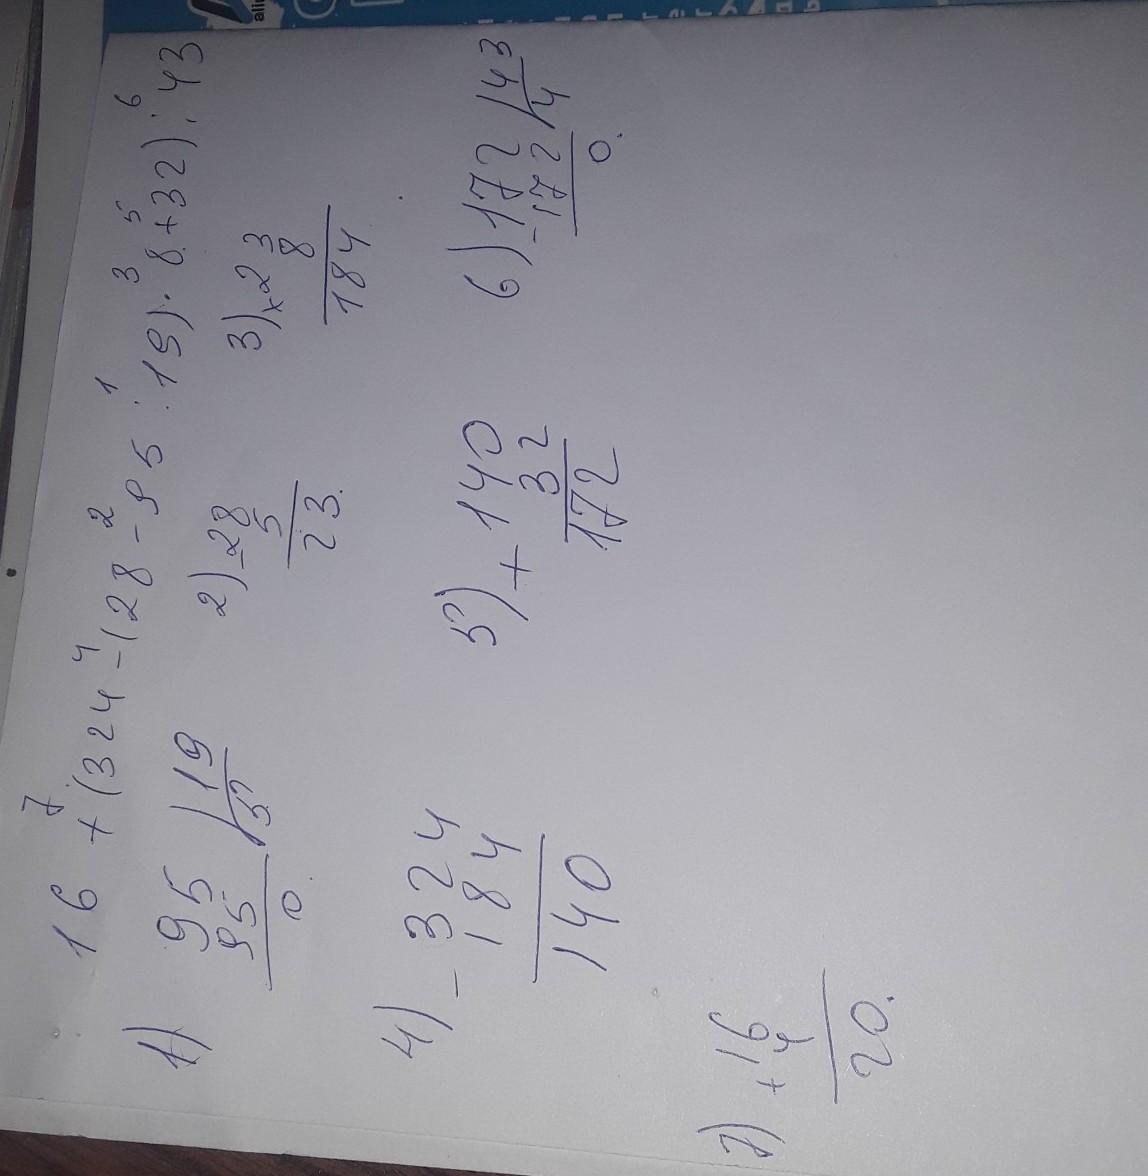 7 4 2 1 3 5 6
16 + (324 - (28 - 95 : 19) · 8 + 32) : 43
1) 95 | 19
95 | 5
0.
2) - 28
5
23.
3) × 23
8
184
4) - 324
184
140
5) + 140
32
172
6) - 172 | 43
172 | 4
0.
7) + 16
4
20.